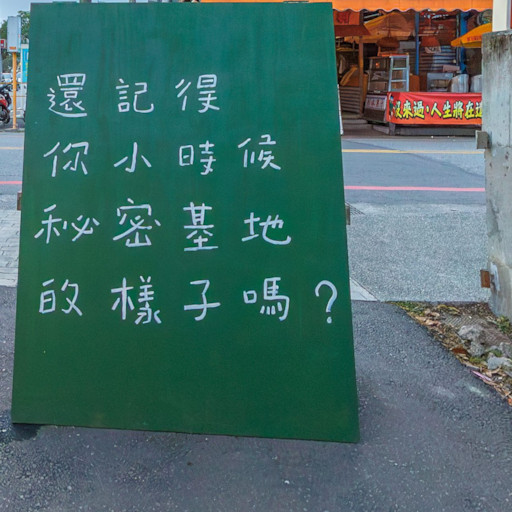 還記得
你小時候
秘密基地
的樣子嗎？
沒來過·人生將在這